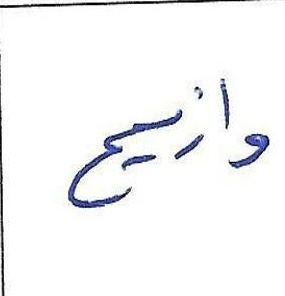 وازيح